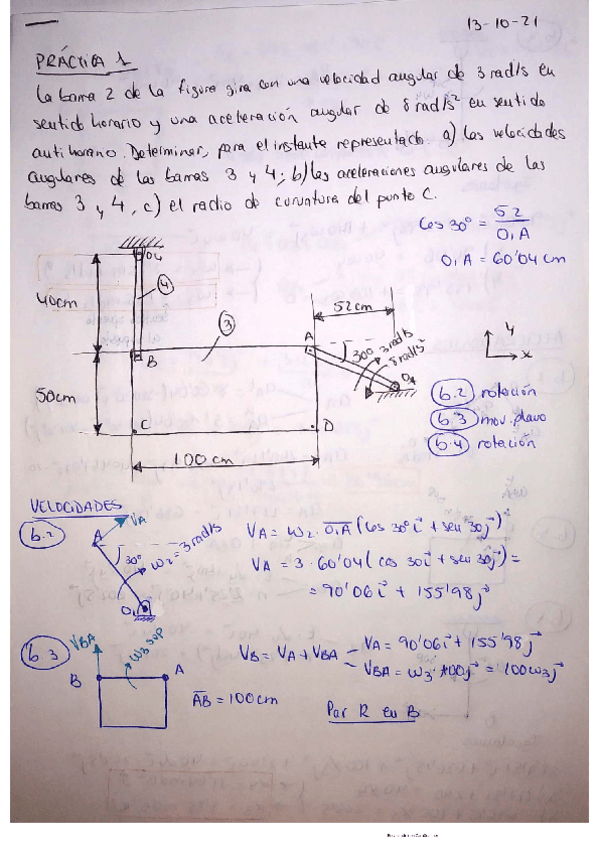 13-10-21
PRÁCTICA 1
La barra 2 de la figura gira con una velocidad angular de 3 rad/s en
sentido horario y una aceleración angular de 8 rad/s² en sentido
antihorario. Determinar, para el instante representado: a) las velocidades
angulares de las barras 3 y 4; b) las aceleraciones angulares de las
barras 3 y 4, c) el radio de curvatura del punto C.
Cos 30° = 52 / O₁A
O₁A = 60'04 cm
O4
40cm
4
3
52cm
A
30°
3 rad/s
8 rad/s²
B
y
x
50cm
C
D
100cm
b.2 rotación
b.3 mov. plano
b.4 rotación
VELOCIDADES
b.2
A
VA
30°
ω₂ = 3 rad/s
O₁
VA = ω₂ · O₁A (cos 30° i + sen 30 j)
VA = 3 · 60'04 (cos 30 i + sen 30 j) =
= 90'06 i + 155'98 j
b.3
VBA
ω₃ sup
B
A
AB = 100cm
VB = VA + VBA
VA = 90'06 i + 155'98 j
VBA = ω₃ · 100 j = 100ω₃ j
Par R en B